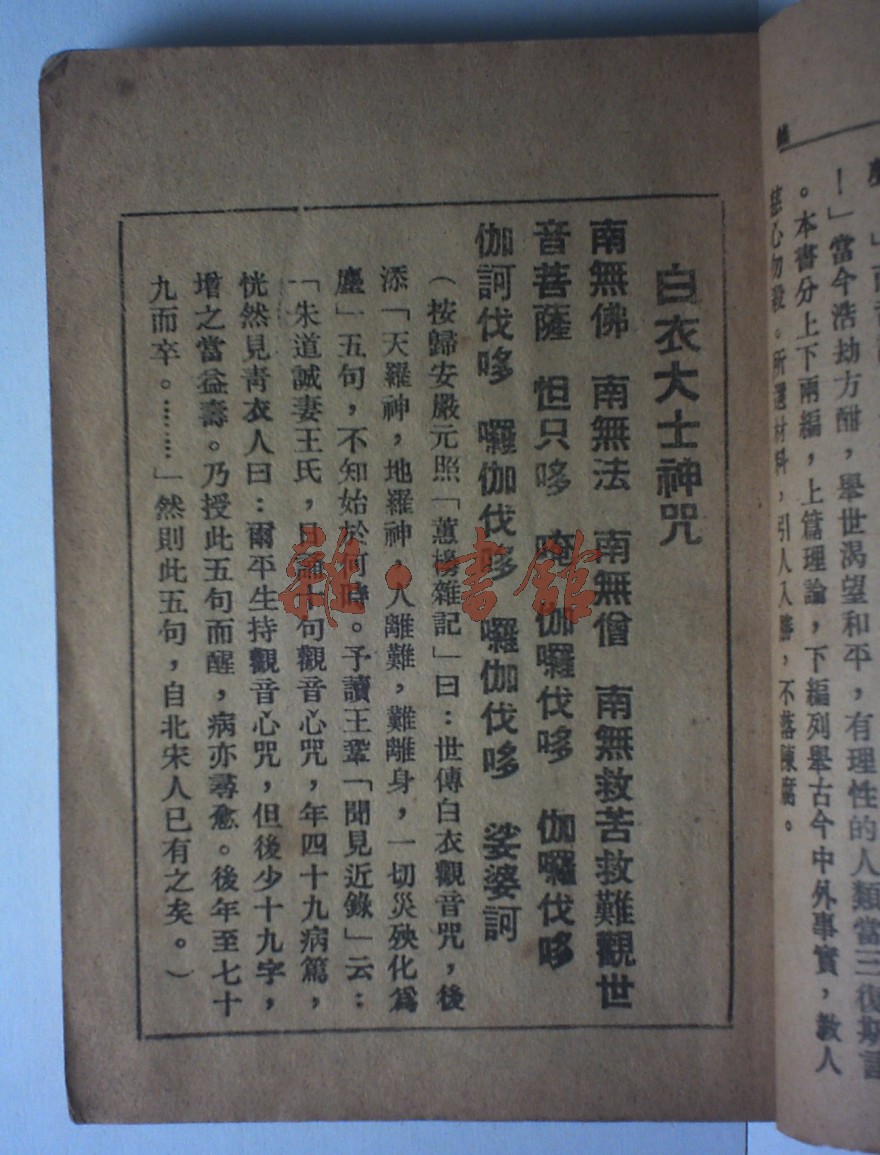 白衣大士神咒
南無佛 南無法 南無僧 南無救苦救難觀世
音菩薩 怛只哆 唵 伽囉伐哆 伽囉伐哆
伽訶伐哆 囉伽伐哆 囉伽伐哆 娑婆訶
（按歸安嚴元照「蕙櫋雜記」曰：世傳白衣觀音咒，後
添「天羅神，地羅神，人離難，難離身，一切災殃化爲
塵」五句，不知始於何時。予讀王鞏「聞見近錄」云：
「朱道誠妻王氏，日誦十句觀音心咒，年四十九病篤，
恍然見靑衣人曰：爾平生持觀音心咒，但後少十九字，
增之當益壽。乃授此五句而醒，病亦尋愈。後年至七十
九而卒。………」然則此五句，自北宋人已有之矣。）
雜·書館
！」當今浩劫方酣，舉世渴望和平，有理性的人類當三復斯言
。本書分上下兩編，上篇理論，下編列舉古今中外事實，教人
慈心勿殺。所選材料，引人入勝，不落陳腐。